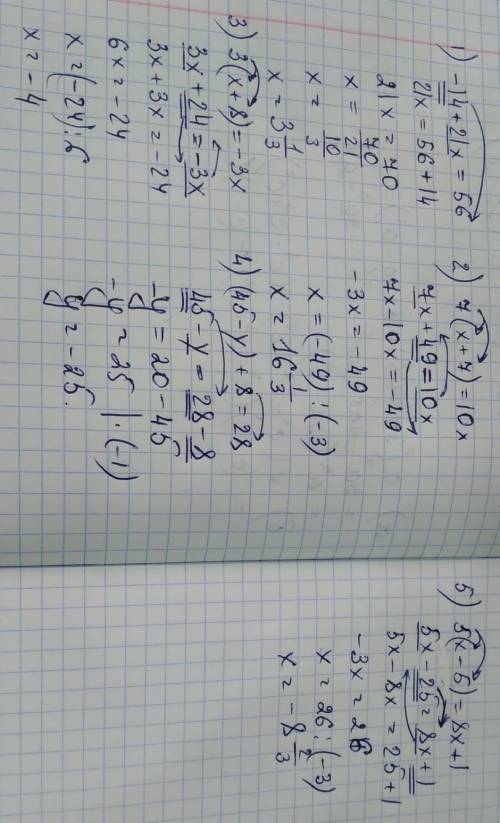 1) -14+21x = 56
21x = 56+14
21x = 70
x = 70/21
x = 10/3
x = 3 1/3
3) 3(x+8) = -3x
3x+24 = -3x
3x+3x = -24
6x = -24
x = (-24):6
x = -4
2) 7(x+7) = 10x
7x+49 = 10x
7x-10x = -49
-3x = -49
x = (-49) : (-3)
x = 16 1/3
4) (45-y)+8 = 28
45-y = 28-8
-y = 20-45
-y = 25 | ·(-1)
y = -25.
5) 5(x-5) = 8x+1
5x-25 = 8x+1
5x-8x = 25+1
-3x = 26
x = 26:(-3)
x = -8 2/3